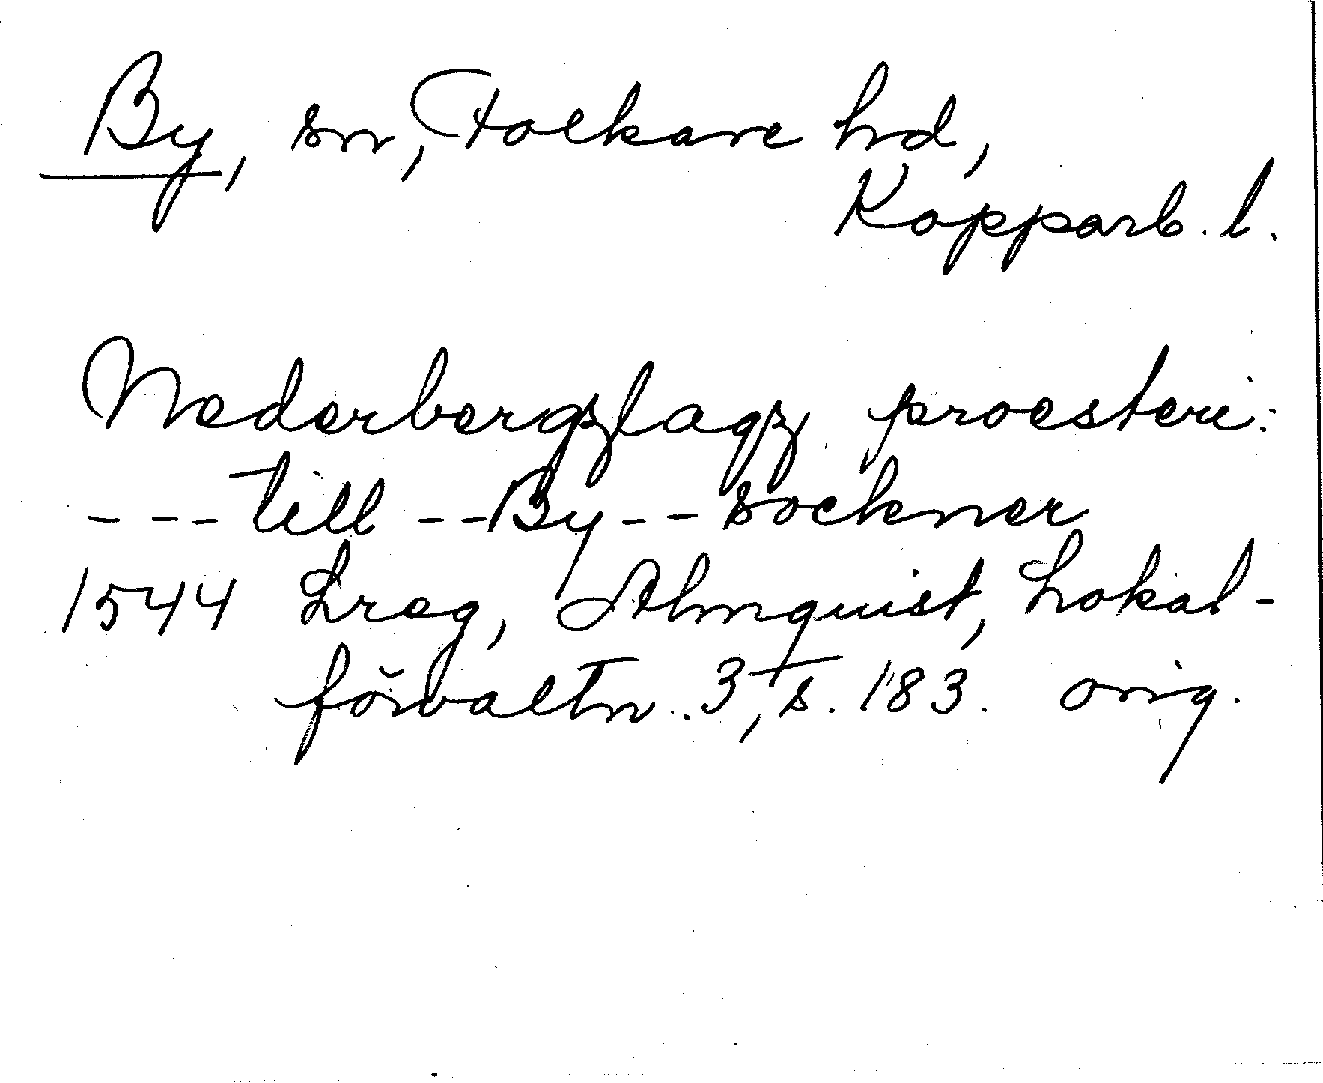 By, sn, Folkare hd,
Kopparb. l.
Nederbergzlagz proesteri:
---till--By--sockner
1544 Lreg, Almquist, Lokal-
förvaltn. 3, s. 183. orig.